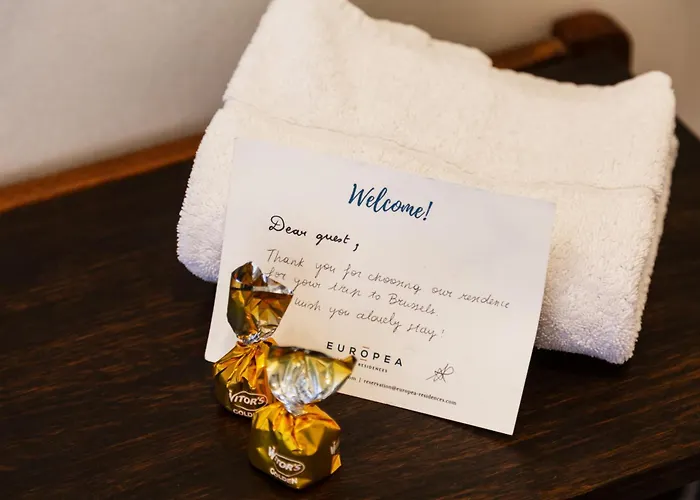 Welcome!
Dear guest,
Thank you for choosing our residence
for your trip to Brussels.
wish you a lovely stay!
EUROPEA
RESIDENCES
reservation@europea-residences.com
VITOR'S
GOLDEN
VITOR'S
GOLDEN